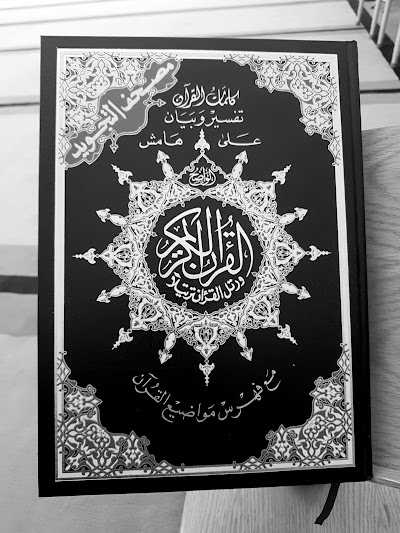 مصحف التجويد
كلمات القرآن
تفسير وبيان
على هامش
القرآن الكريم
ورتل القرآن ترتيلا
مع فهرس مواضيع القرآن